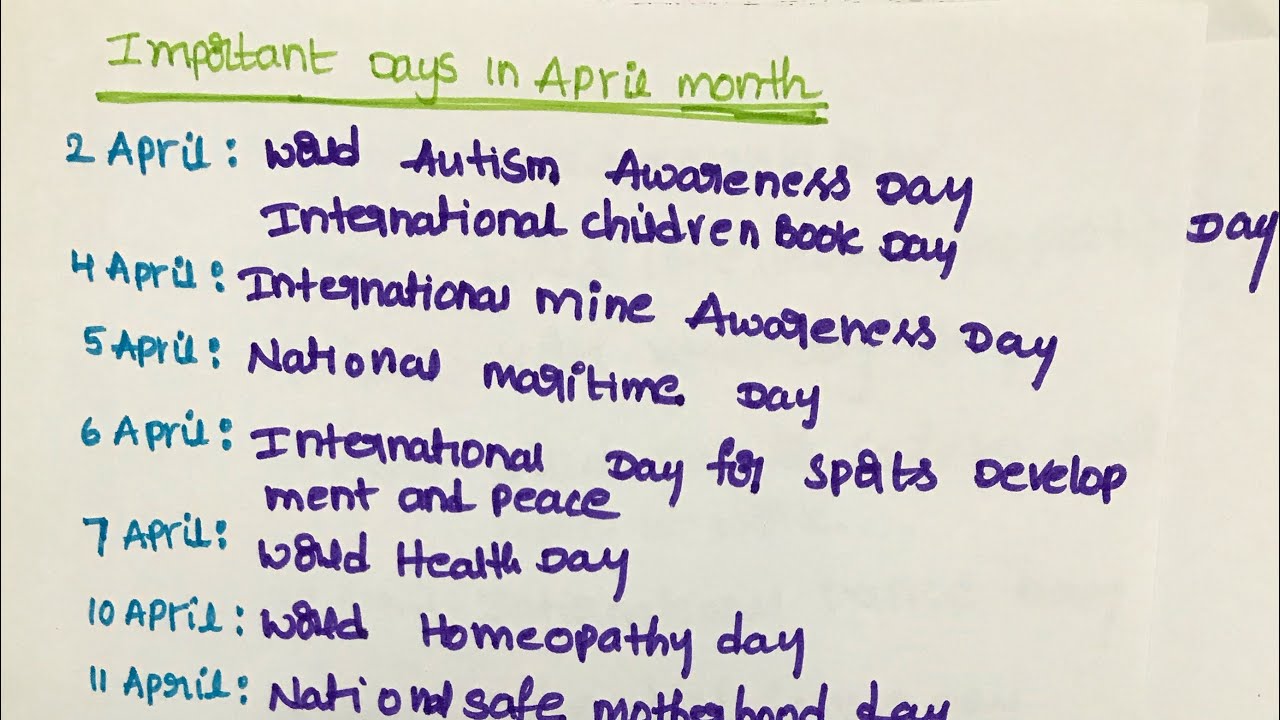 Important Days in April month
2 April: World Autism Awareness Day
International children Book Day
Day
4 April: International mine Awareness Day
5 April: National maritime Day
6 April: International Day for sports Develop
ment and peace
7 April: World Health Day
10 April: World Homeopathy day
11 April: National safe motherhood day